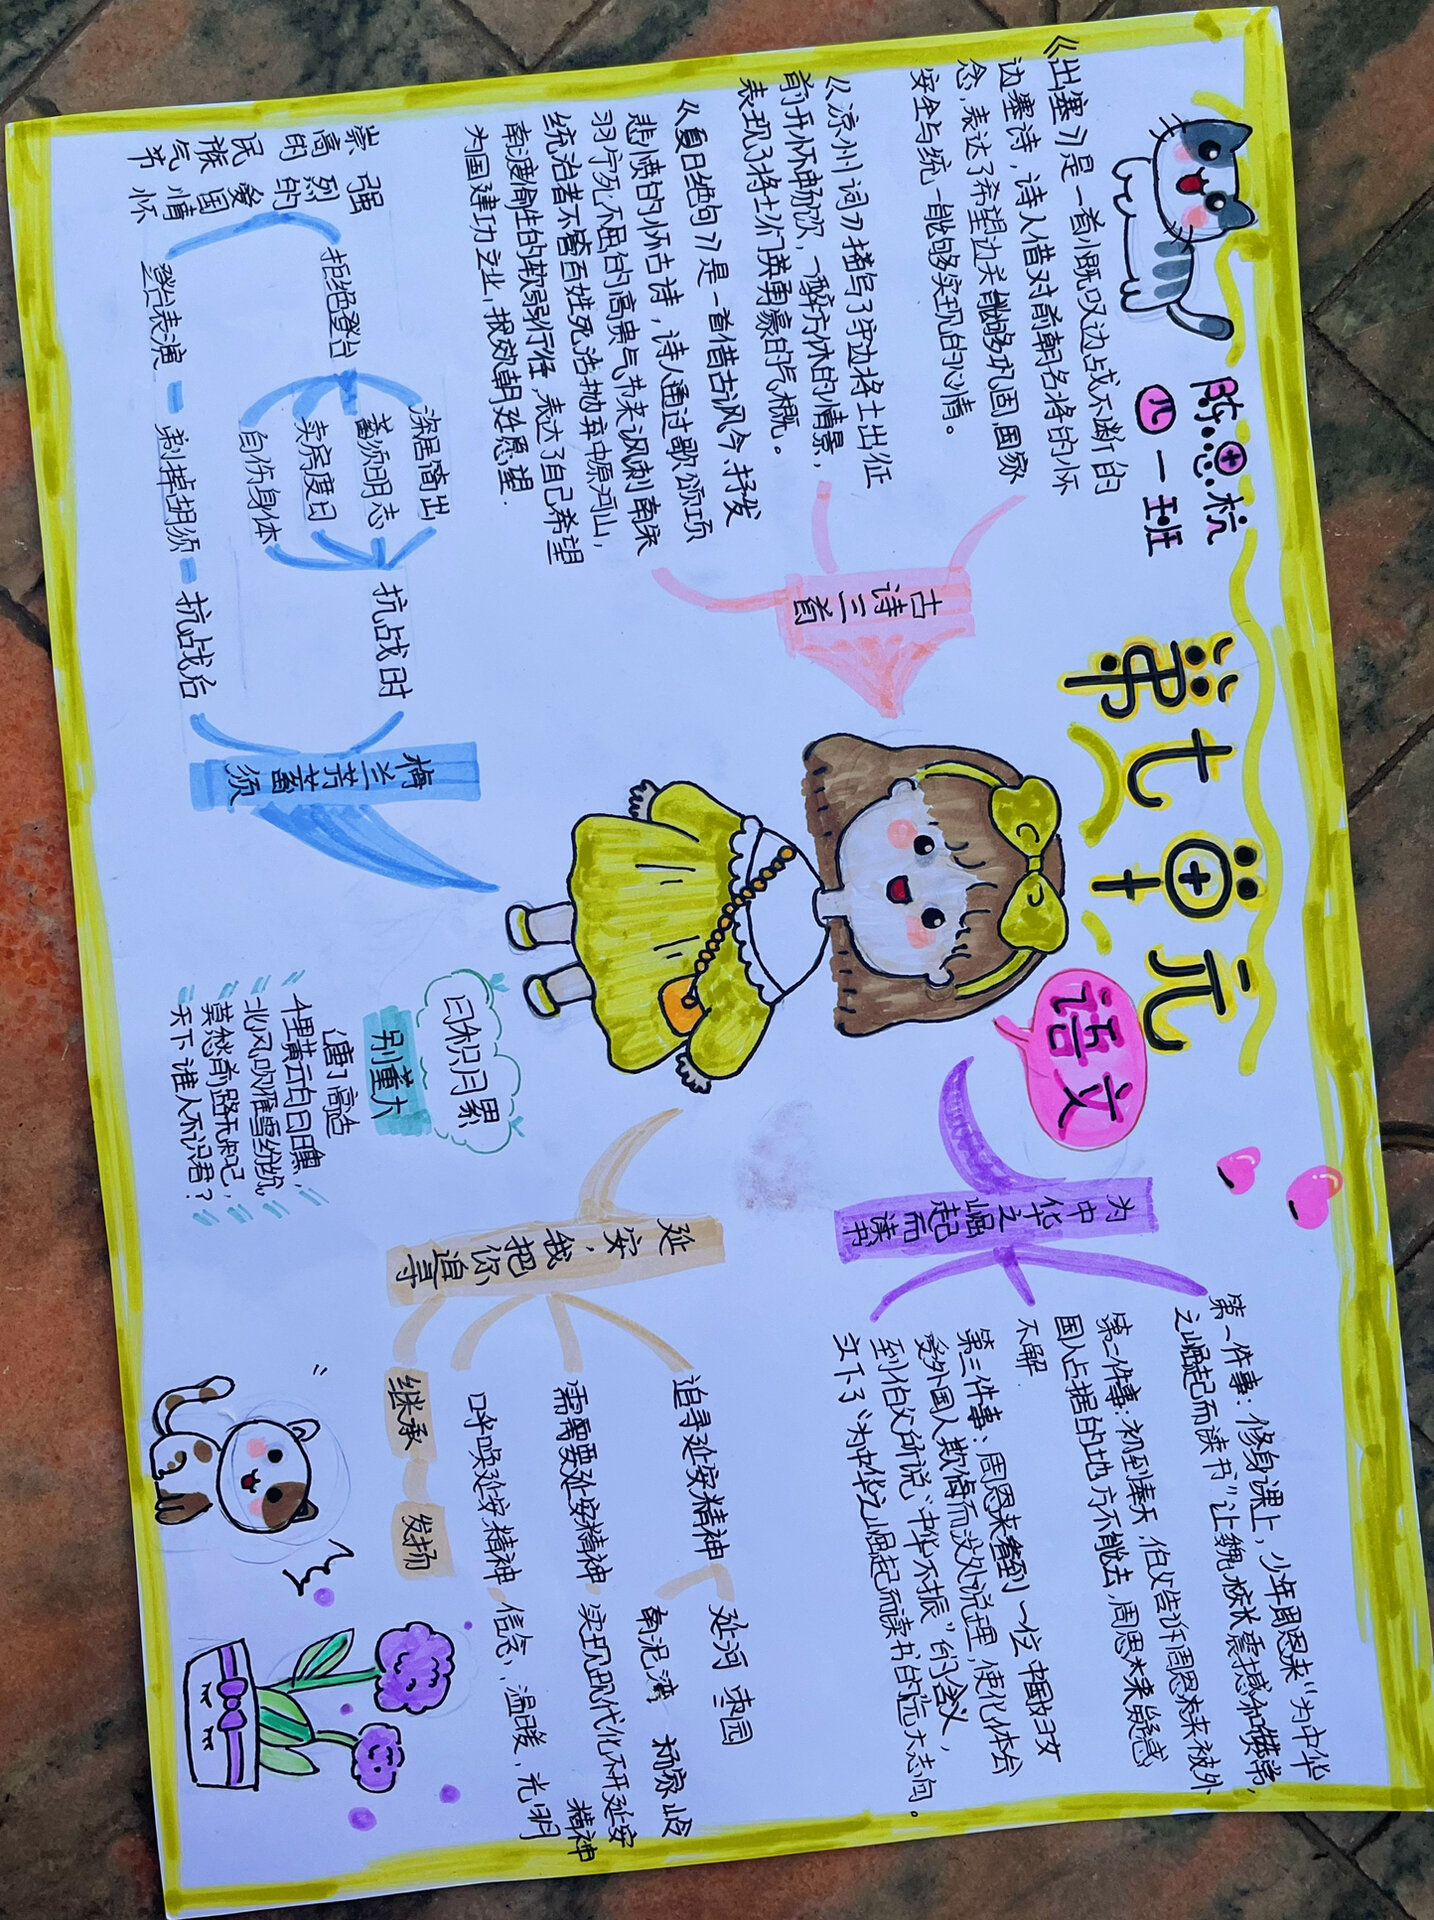 陈恩杭
四一班
第七单元
语文
古诗三首
《出塞》是一首慨叹边战不断的
边塞诗，诗人借对前朝名将的怀
念，表达了希望边关能够巩固，国家
安全与统一能够实现的心情。
《凉州词》描写了守边将士出征
前开怀畅饮，一醉方休的情景，
表现了将士们英勇豪的气概。
《夏日绝句》是一首借古讽今、抒发
悲愤的怀古诗，诗人通过歌颂项
羽宁死不屈的高贵气节来讽刺南宋
统治者不管百姓死活抛弃中原河山，
南渡偷生的软弱行径，表达了自己希望
为国建功立业，报效朝廷愿望.
梅兰芳蓄须
抗战时
深居简出
蓄须明志
卖房度日
自伤身体
拒绝登台
抗战后
剃掉胡须
登台表演
崇高的民族气节
强烈的爱国情怀
为中华之崛起而读书
第一件事：修身课上，少年周恩来“为中华
之崛起而读书”让魏校长震撼和赞赏，
第二件事：初到奉天，伯父告诉周恩来被外
国人占据的地方不能去，周恩来疑惑
不解.
第三件事：周恩来看到一位中国妇女
受外国人欺侮而没处说理，使他体会
到伯父所说“中华不振”的含义，
立下了“为中华之崛起而读书的远大志向。
日积月累
别董大
(唐)高适
千里黄云白日曛，
北风吹雁雪纷纷。
莫愁前路无知己，
天下谁人不识君？
延安，我把你追寻
追寻延安精神
延河 枣园
南泥湾 杨家岭
需要延安精神 实现现代化不开延安
精神
呼唤延安精神 信念，温暖，光明
继承
发扬